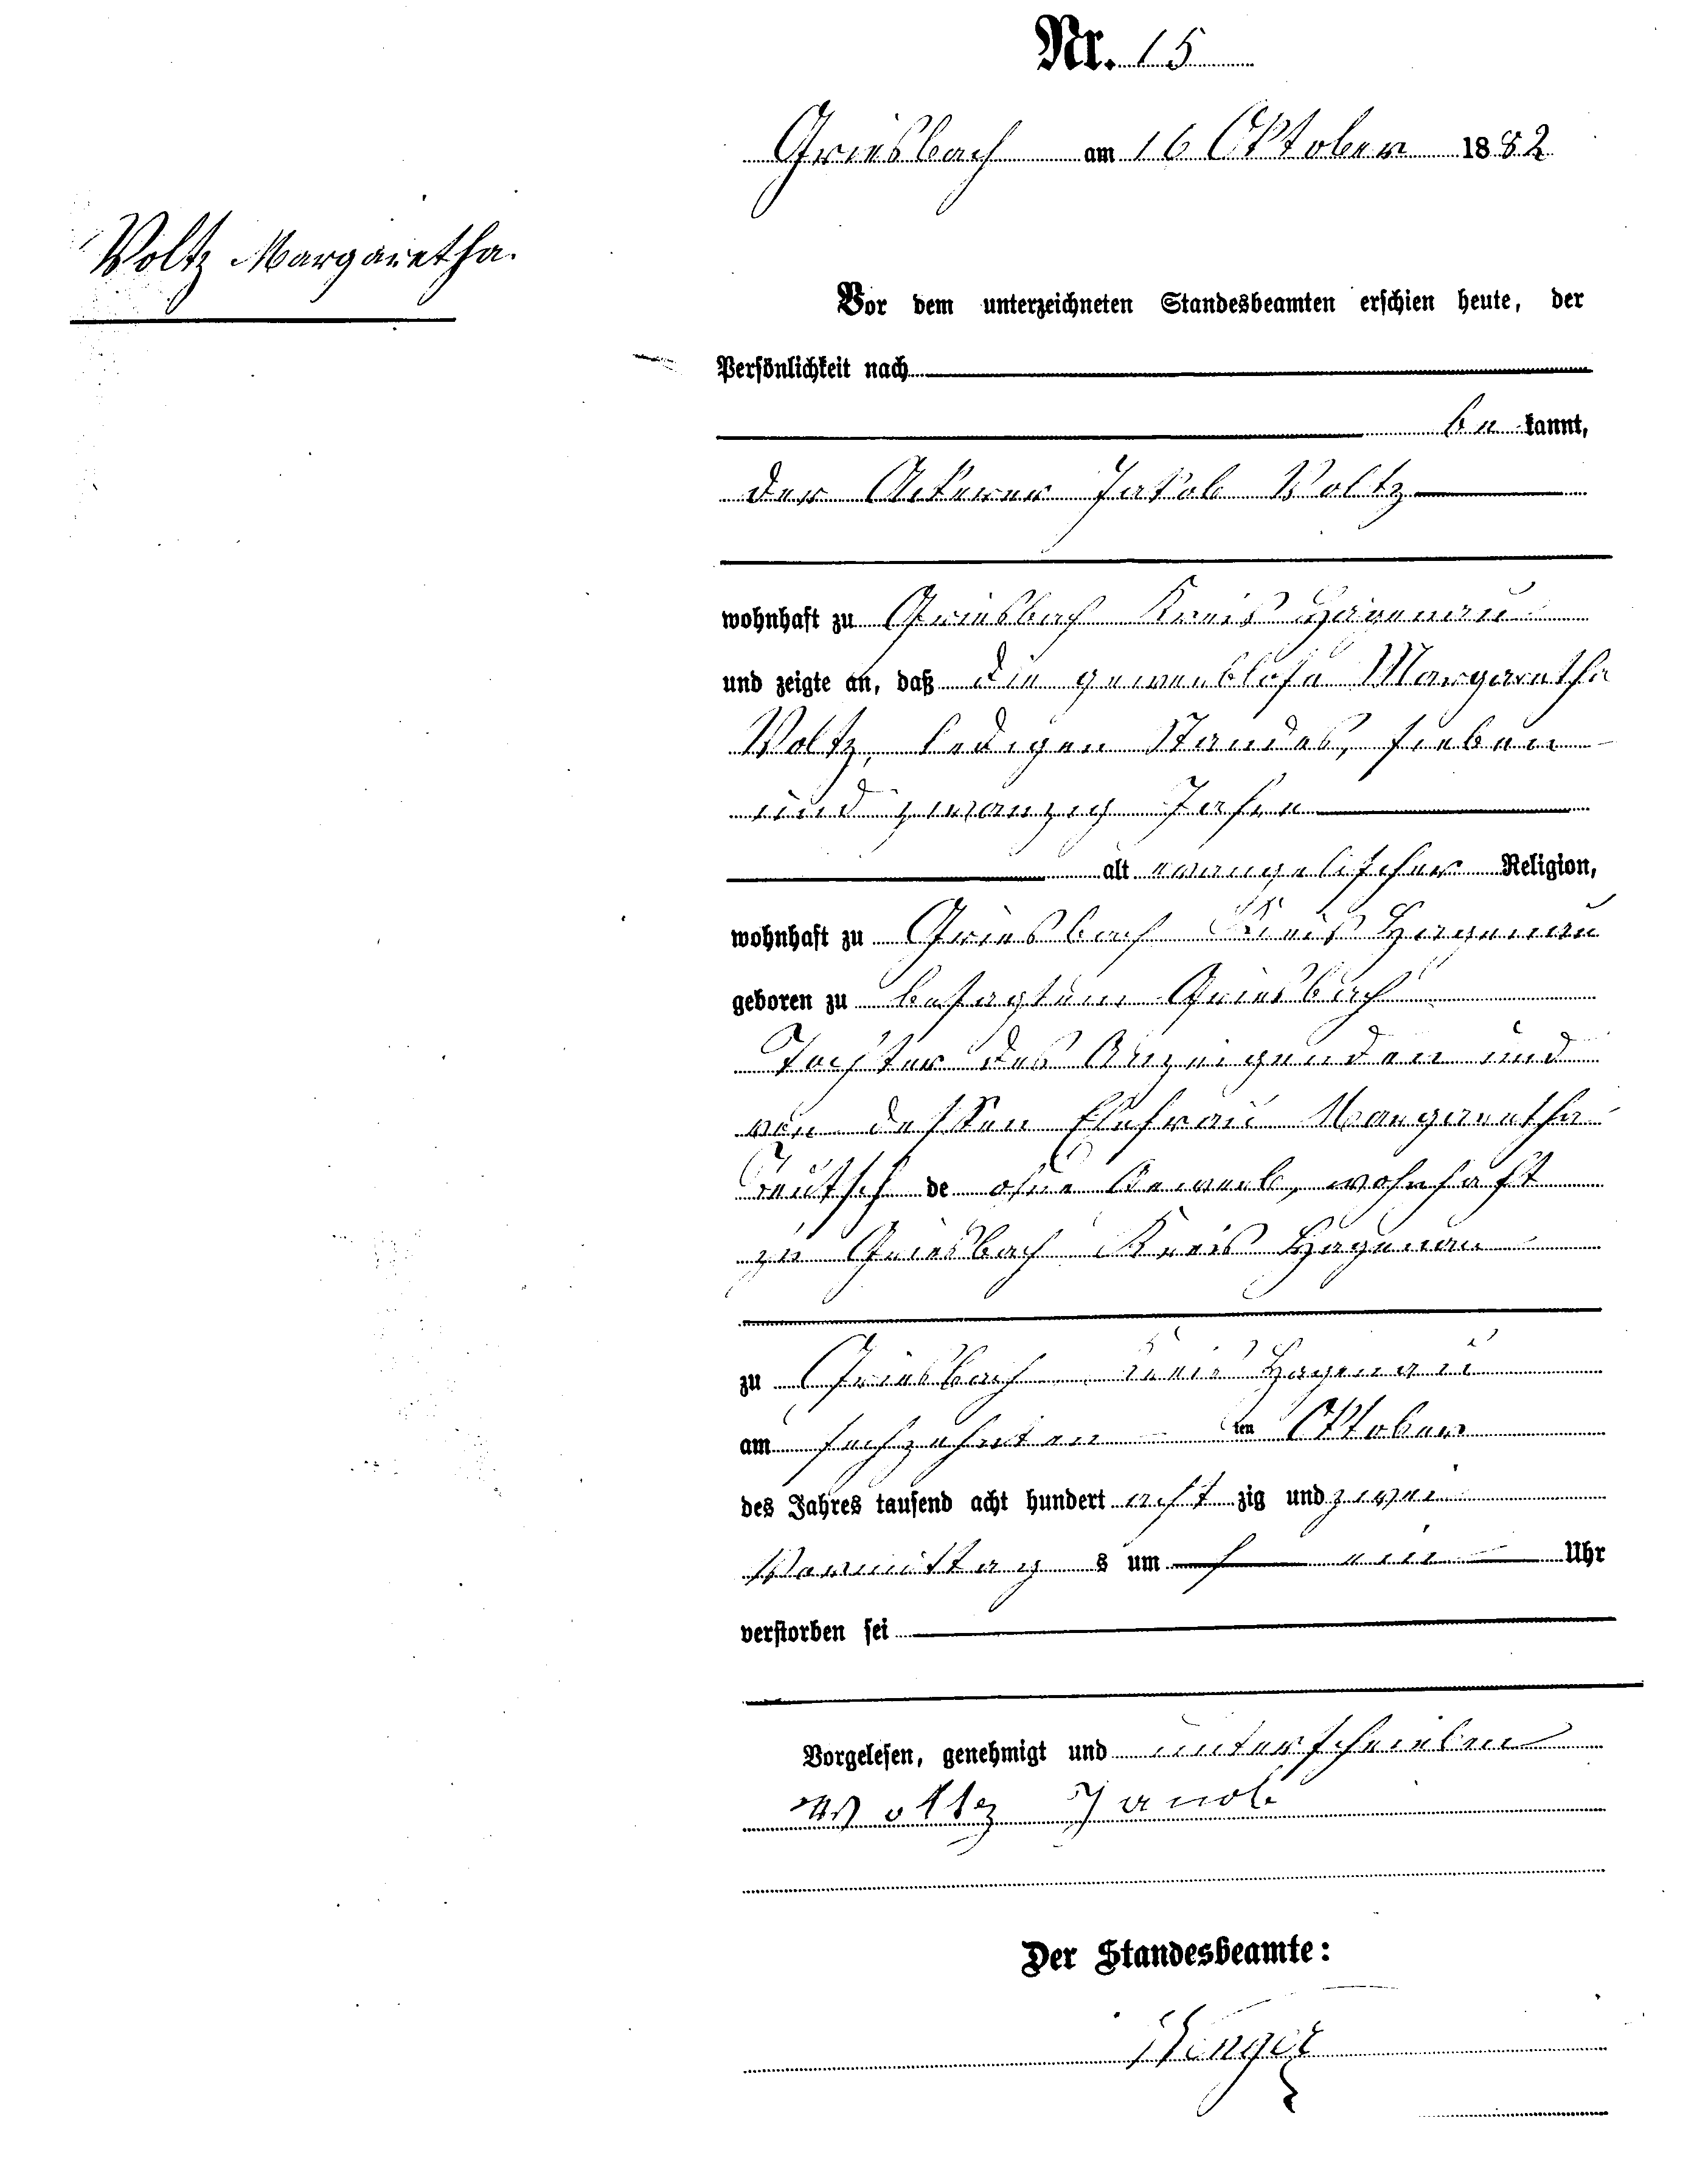 Nr. 15
Griesbach am 16 Oktober 1882
Voltz Margaretha.
Vor dem unterzeichneten Standesbeamten erschien heute, der
Persönlichkeit nach
be kannt,
der Ackerer Jakob Voltz
wohnhaft zu Griesbach Kreis Hagenau
und zeigte an, daß die gewerblose Margaretha
Voltz, ledigen Standes, sieben
und zwanzig Jahre
alt evangelischer Religion,
wohnhaft zu Griesbach Kreis Hagenau
geboren zu besagtem Griesbach
Tochter des Anzeigenden und
von dessen Ehefrau Margaretha
de ohne Gewerb, wohnhaft
zu Griesbach Kreis Hagenau
zu Griesbach Kreis Hagenau
am sechzehnten ten Oktober
des Jahres tausend acht hundert acht zig und zwei
Vormittag s um ein Uhr
verstorben sei
Vorgelesen, genehmigt und unterschrieben
Voltz Jacob
Der Standesbeamte: